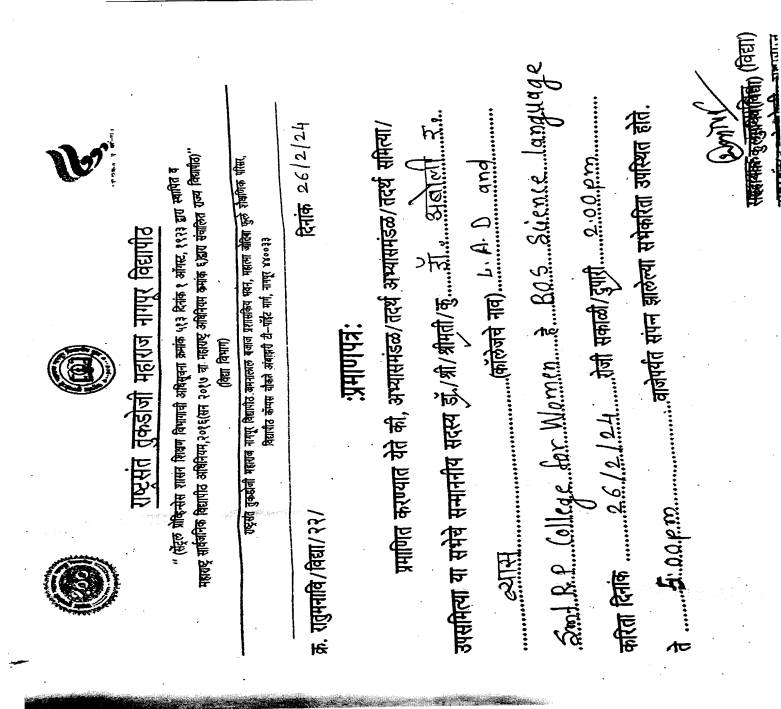 राष्ट्रसंत तुकडोजी महाराज नागपूर विद्यापीठ
" (सेंट्रल प्रोव्हिन्सेस शासन शिक्षण विभागाची अधिसूचना क्रमांक ५१३ दिनांक १ ऑगस्ट, १९२३ द्वारा स्थापित व
महाराष्ट्र सार्वजनिक विद्यापीठ अधिनियम,२०१६(सन २०१७ चा महाराष्ट्र अधिनियम क्रमांक ६)द्वारा संचालित राज्य विद्यापीठ)"
(विद्या विभाग)
राष्ट्रसंत तुकडोजी महाराज नागपूर विद्यापीठ जमनालाल बजाज प्रशासकिय भवन, महात्मा जोतिबा फुले शैक्षणिक परिसर,
विद्यापीठ कॅम्पस चौकले अंबाझरी टी-पॉईंट मार्ग, नागपूर ४४००३३
क्र. रातुमनावि/विद्या/२२/ दिनांक 26/2/24
:प्रमाणपत्र:
प्रमाणित करण्यात येते की, अभ्यासमंडळ/तदर्थ अभ्यासमंडळ/तदर्थ समित्या/
उपसमित्या या सभेचे सन्माननीय सदस्य डॉ./श्री/श्रीमती/कु. डॉ. अबोली र.
व्यास (कॉलेजचे नाव) L.A.D and
Smt R.P College for Women हे BOS Science language
करिता दिनांक 26/2/24 रोजी सकाळी/दुपारी 2:00pm
ते 5:00pm वाजेपर्यंत संपन्न झालेल्या सभेकरिता उपस्थित होते.
(विद्या)